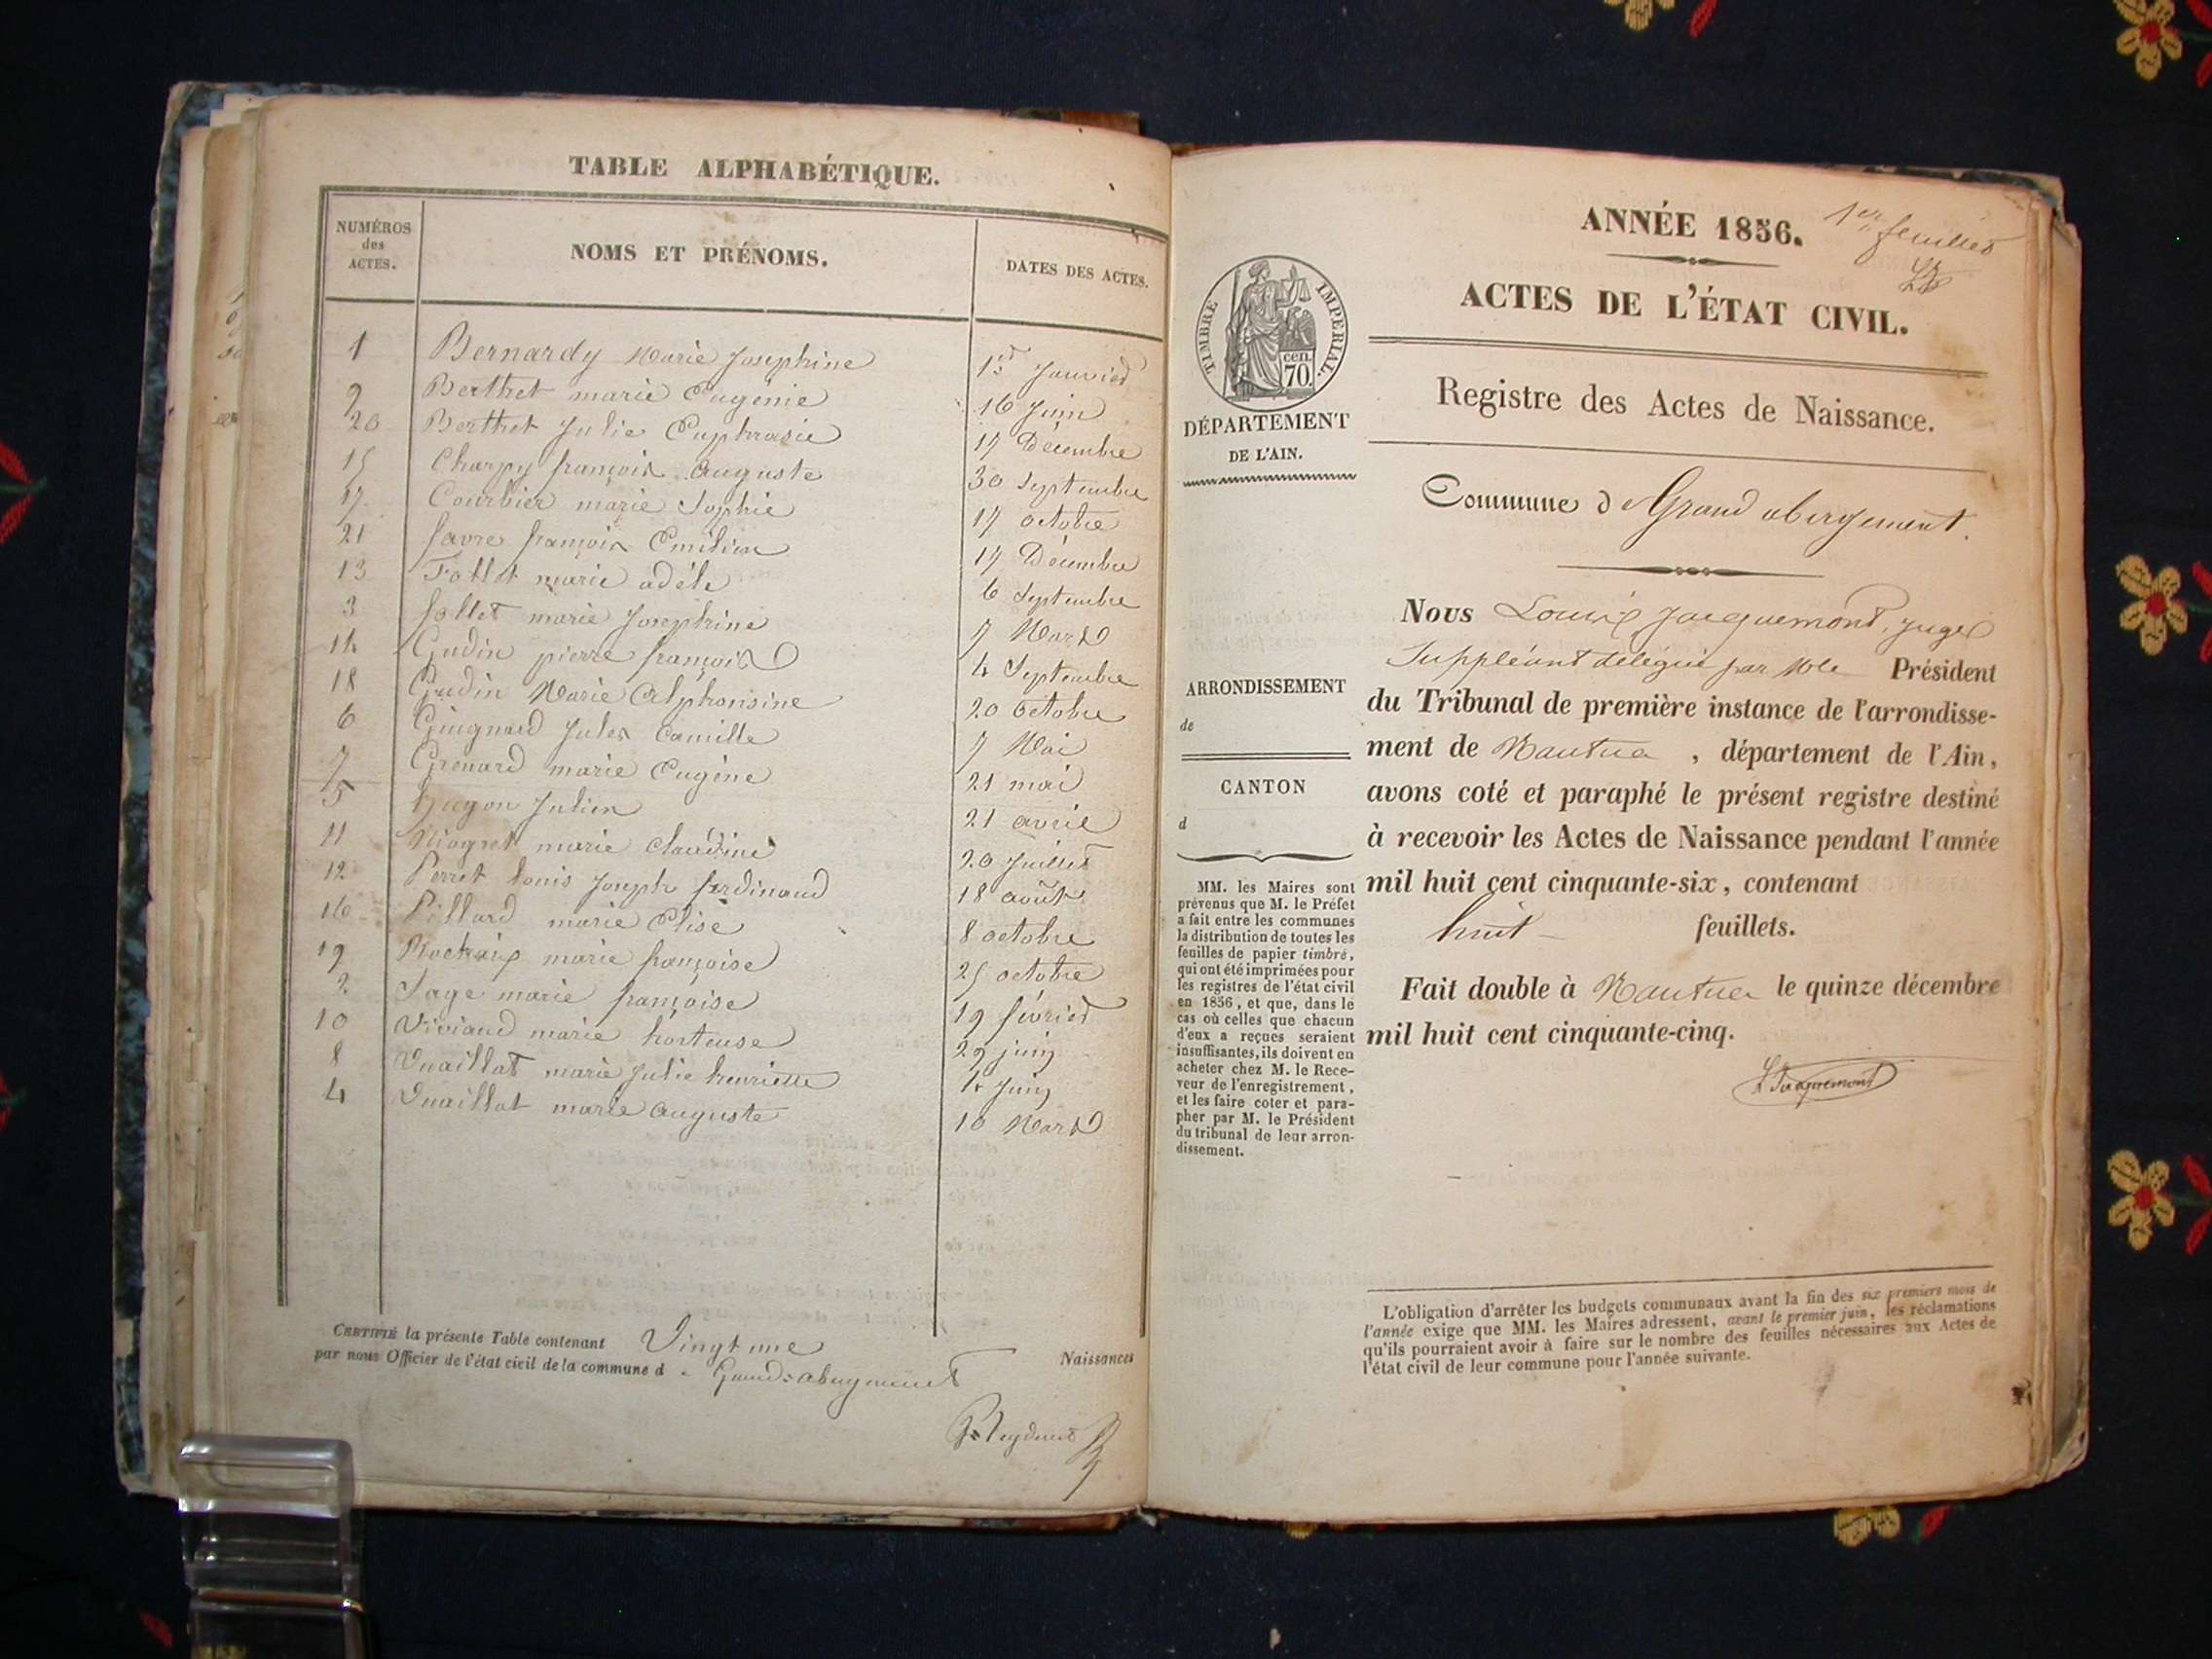 TABLE ALPHABÉTIQUE.
NUMÉROS des ACTES. NOMS ET PRÉNOMS. DATES DES ACTES.
1 Bernardy Marie Josephine 1er Janvier
9 Berthet marie Eugénie 16 Juin
20 Berthet Julie Euphrasie 17 Décembre
15 Charpy françois Auguste 30 Septembre
17 Courbier marie Sophie 17 octobre
21 favre françois Emilien 17 Décembre
13 Follet marie adèle 6 Septembre
3 follet marie Josephine 7 Mars
14 Gudin pierre françois 4 Septembre
18 Gudin Marie Alphonsine 20 octobre
6 Guignard Jules Camille 7 Mai
7 Grenard marie Eugène 21 mai
5 hugon Julien 21 avril
11 Niogret marie Claudine 20 Juillet
12 Perret louis Joseph ferdinand 18 août
16 Pillard marie Elise 8 octobre
19 Rochaix marie françoise 25 octobre
2 Sage marie françoise 19 février
10 Viviand marie hortense 29 juin
8 Vuaillat marie Julie henriette 1er Juin
4 Vuaillat marie Auguste 10 Mars
CERTIFIÉ la présente Table contenant Vingt une Naissances
par nous Officier de l'état civil de la commune d Grand-abergement
ANNÉE 1856. 1er feuillet
ACTES DE L'ÉTAT CIVIL.
TIMBRE IMPERIAL.
cen. 70.
DÉPARTEMENT
DE L'AIN.
Registre des Actes de Naissance.
Commune de Grand abergement.
Nous Louis Jacquemont, Juge
Suppléant délégué par Mr le Président
du Tribunal de première instance de l'arrondisse-
ment de Nantua, département de l'Ain,
avons coté et paraphé le présent registre destiné
à recevoir les Actes de Naissance pendant l'année
mil huit cent cinquante-six, contenant
huit feuillets.
Fait double à Nantua le quinze décembre
mil huit cent cinquante-cinq.
L Jacquemont
ARRONDISSEMENT
de
CANTON
d
MM. les Maires sont
prévenus que M. le Préfet
a fait entre les communes
la distribution de toutes les
feuilles de papier timbré,
qui ont été imprimées pour
les registres de l'état civil
en 1856, et que, dans le
cas où celles que chacun
d'eux a reçues seraient
insuffisantes, ils doivent en
acheter chez M. le Rece-
veur de l'enregistrement,
et les faire coter et para-
pher par M. le Président
du tribunal de leur arron-
dissement.
L'obligation d'arrêter les budgets communaux avant la fin des six premiers mois de
l'année exige que MM. les Maires adressent, avant le premier juin, les réclamations
qu'ils pourraient avoir à faire sur le nombre des feuilles nécessaires aux Actes de
l'état civil de leur commune pour l'année suivante.